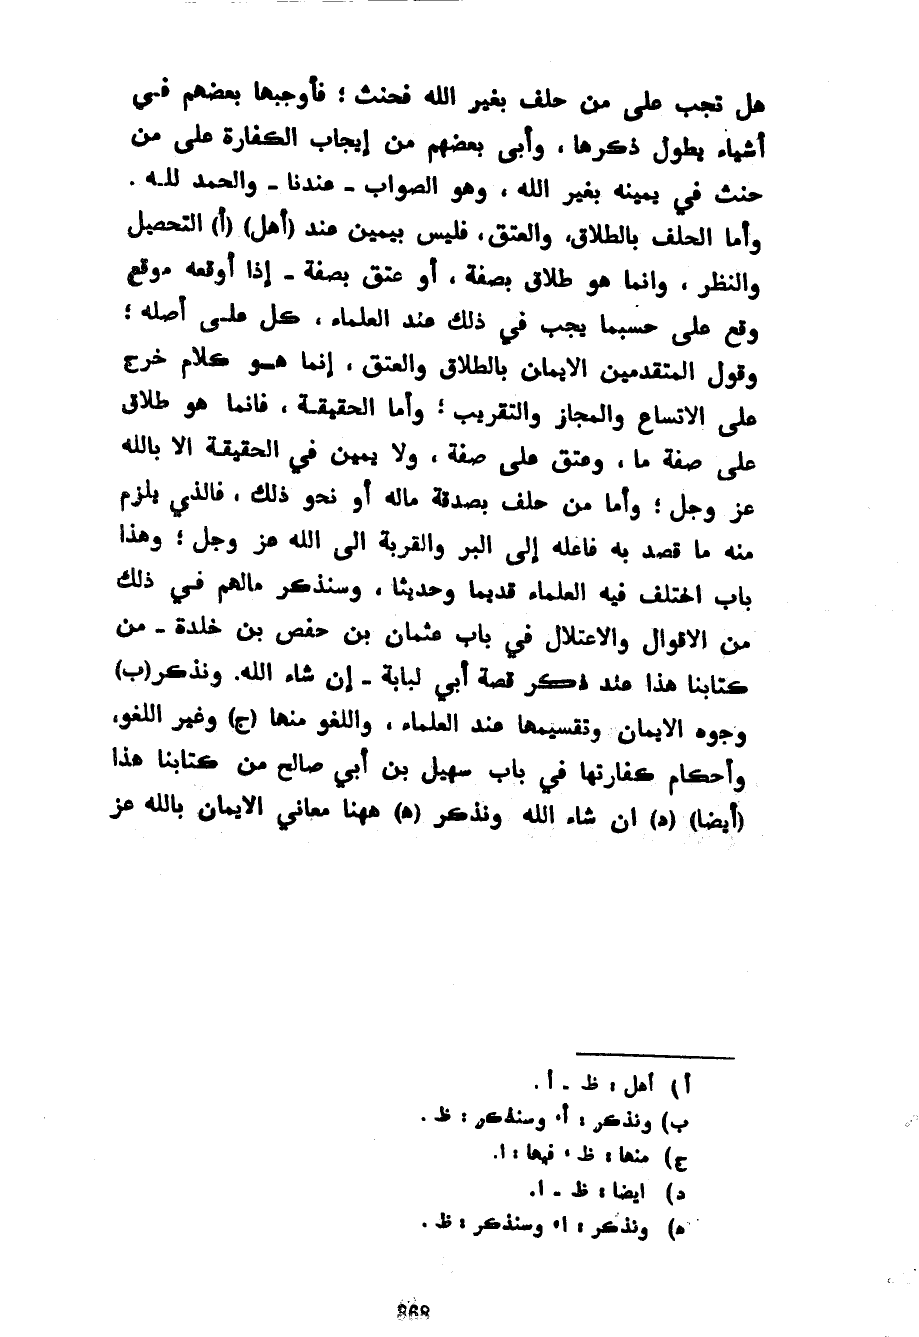 هل تجب على من حلف بغير الله فحنث ؛ فأوجبها بعضهم فـي
أشياء يطول ذكرها ، وأبى بعضهم من إيجاب الكفارة على من
حنث في يمينه بغير الله ، وهو الصواب ـ عندنا ـ والحمد للـه .
وأما الحلف بالطلاق، والعتق، فليس بيمين عند (أهل) (أ) التحصيل
والنظر ، وانما هو طلاق بصفة ، أو عتق بصفة ـ إذا أوقعه موقع
وقع على حسبما يجب في ذلك عند العلماء ، كل علـى أصله ؛
وقول المتقدمين الايمان بالطلاق والعتق ، إنما هـو كلام خرج
على الاتساع والمجاز والتقريب ؛ وأما الحقيقـة ، فانما هو طلاق
على صفة ما ، وعتق على صفة ، ولا يمين في الحقيقـة الا بالله
عز وجل ؛ وأما من حلف بصدقة ماله أو نحو ذلك ، فالذي يلزم
منه ما قصد به فاعله إلى البر والقربة الى الله عز وجل ؛ وهذا
باب اختلف فيه العلماء قديما وحديثا ، وسنذكر مالهم فـي ذلك
من الاقوال والاعتلال في باب عثمان بن حفص بن خلدة ـ من
كتابنا هذا عند ذكر قصة أبي لبابة ـ إن شاء الله. ونذكر(ب)
وجوه الايمان وتقسيمها عند العلماء ، واللغو منها (ج) وغير اللغو،
وأحكام كفارتها في باب سهيل بن أبي صالح من كتابنا هذا
(أيضا) (د) ان شاء الله ونذكر (ه) ههنا معاني الايمان بالله عز
أ) أهل : ظ ـ أ .
ب) ونذكر : أ، وسنذكر : ظ .
ج) منها : ظ ، فيها : ا.
د) ايضا : ظ ـ ا.
ه) ونذكر : ا، وسنذكر : ظ .
368